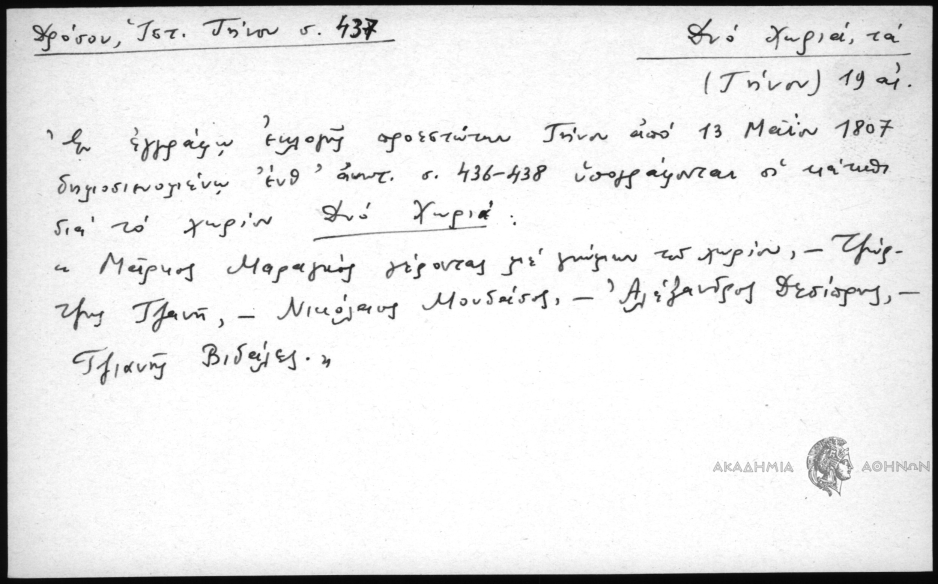 Δρόσου, Ἱστ. Τήνου σ. 437
Δυό Χωριά, τά
(Τήνου) 19 αἰ.
Ἐν ἐγγράφῳ ἐκλογῆς προεστώτων Τήνου ἀπό 13 Μαΐου 1807
δημοσιευομένῳ ἔνθ' ἀνωτ. σ. 436-438 ὑπογράφονται οἱ κάτωθι
διά τό χωρίον Δυό Χωριά:
« Μάρκος Μαραγκός γέροντας μέ γνώμην τοῦ χωρίου, – Τζώρ-
τζης Τζανῆ, – Νικόλαος Μουδάτσος, – Ἀλέξανδρος Δεσύπρης, –
Τζιανῆς Βιδάλες. »
ΑΚΑΔΗΜΙΑ ΑΘΗΝΩΝ